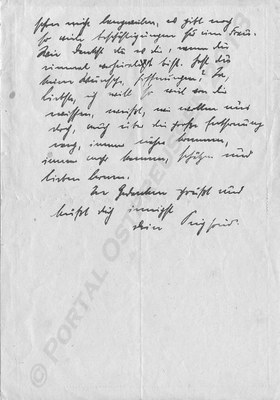 schon nicht langweilen, es gibt noch
so viele Beschäftigungen für eine Frau.
Wie denkst du es dir, wenn du
einmal verheiratet bist. Hast du
keine Wünsche, Hoffnungen? Ja,
Liebste, ich will so viel von dir
wissen, weißt, wir wollen uns
doch, auch über die große Entfernung
weg, immer näher kommen,
immer mehr kennen, schätzen und
lieben lernen.
In Gedanken grüßt und
küßt dich innigst
dein Siegfried
© PORTAL